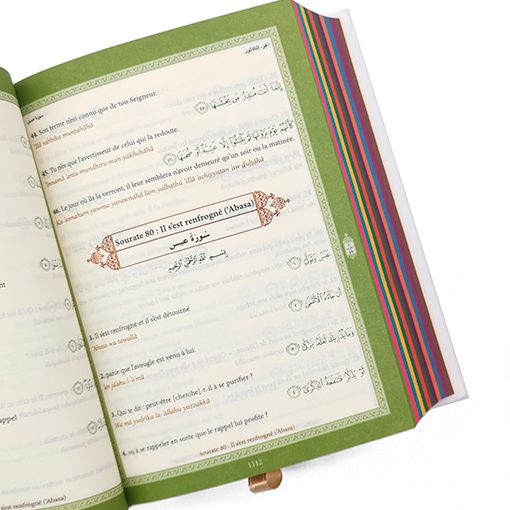 الجزء الثلاثون
44. Son terme n'est connu que de ton Seigneur.
'Ilâ rabbika muntahâhâ
إِنَّمَا أَنتَ مُنذِرُ مَن يَخْشَىٰهَا ٤٥
45. Tu n'es que l'avertisseur de celui qui la redoute.
'Innamâ 'anta mundhiru man yakhchâhâ
كَأَنَّهُمْ يَوْمَ يَرَوْنَهَا لَمْ يَلْبَثُوٓا۟ إِلَّا عَشِيَّةً أَوْ ضُحَىٰهَا ٤٦
46. Le jour où ils la verront, il leur semblera n'avoir demeuré qu'un soir ou la matinée
Ka-'annahum yawma yarawnahâ lam yalbathû 'illâ 'achiyyatan 'aw duhâhâ
Sourate 80 : Il s'est renfrogné ('Abasa)
سُورَةُ عَبَسَ
بِسْمِ اللَّهِ الرَّحْمَٰنِ الرَّحِيمِ
عَبَسَ وَتَوَلَّىٰٓ ١
1. Il s'est renfrogné et il s'est détourné
'Abasa wa tawallâ
أَن جَآءَهُ ٱلْأَعْمَىٰ ٢
2. parce que l'aveugle est venu à lui.
'an jâ'ahu l-'a'mâ
وَمَا يُدْرِيكَ لَعَلَّهُۥ يَزَّكَّىٰٓ ٣
3. Qui te dit : peut-être [cherche]-t-il à se purifier ?
Wa mâ yudrîka la-'allahu yazzakkâ
أَوْ يَذَّكَّرُ فَتَنفَعَهُ ٱلذِّكْرَىٰٓ ٤
4. ou à se rappeler en sorte que le rappel lui profite ?
sourate 80 : Il s'est renfrogné ('Abasa)
1112